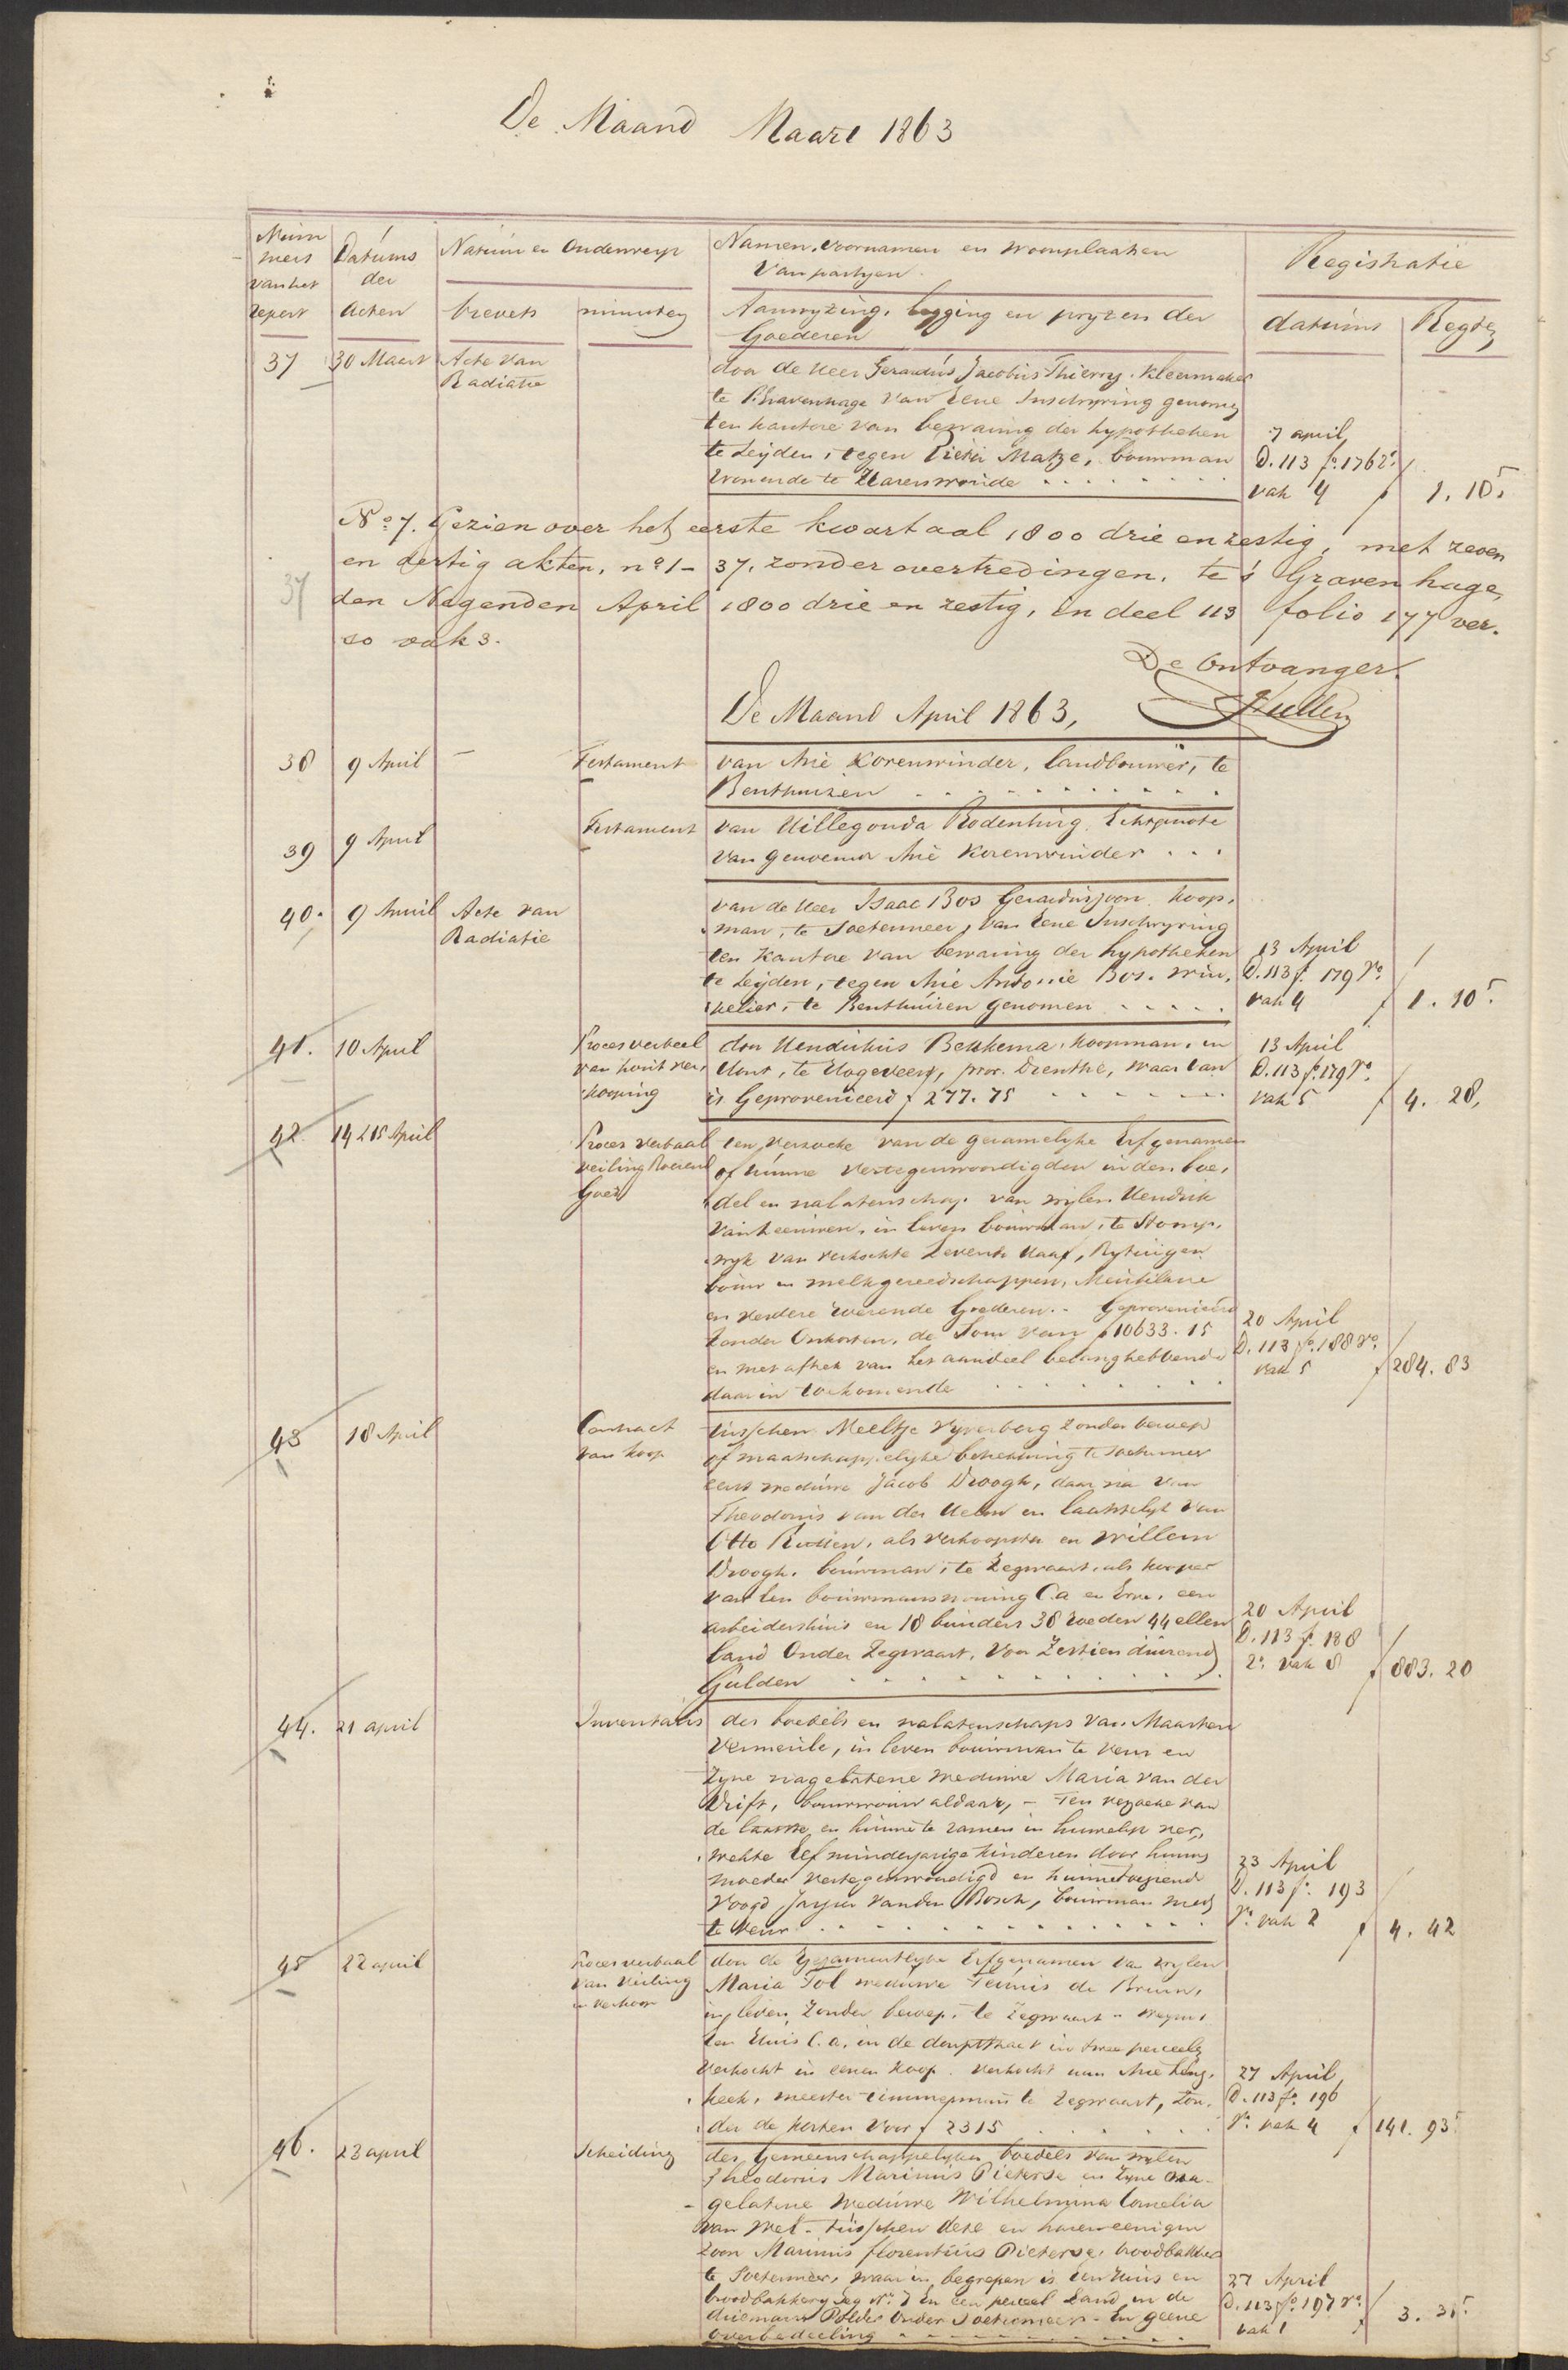 De Maand Maart 1863
Num
mers
van het
repert
Datums
der
Acten
Natuur en Onderwerp
brevets
minuten
Namen, voornamen en woonplaatsen
Van partyen
Aanwyzing, legging en pryzen der
Goederen
Registratie
datums
Regten
37
30 Maart
Acte van
Radiatie
door de Heer Gerardus Jacobus Thierry, Kleermaker
te 's Gravenhage van eene Inschryving genomen
ten kantore van bewaring der hypotheken
te Leyden, tegen Pieter Matze, bouwman
wonende te Hazerswoude
7 april
D. 113 fo. 176 ro.
vak 4
f 1. 10 5
No 7. Gezien over het eerste kwartaal 1800 drie en zestig, met zeven
en dertig akten, no 1 - 37, zonder overtredingen, te 's Gravenhage,
37
den Negenden April 1800 drie en zestig, in deel 113 folio 177 ver.
so vak 3.
De Ontvanger
De Maand April 1863,
38
9 April
-
Testament
van Arie Korenwinder, landbouwer, te
Benthuizen
39
9 April
Testament
van Hillegonda Rodenburg Echtgenote
van genoemde Arie Korenwinder
40.
9 April
Acte van
Radiatie
van de Heer Isaac Bos Gerarduszoon, koop-
man, te Soetermeer, van Eene Inschryving
ten Kantore van bewaring der hypotheken
te Leyden, tegen Arie Antonie Bos, win-
kelier, te Benthuizen genomen
13 April
D. 113 f. 179 ro.
vak 4
f 1. 10 5
41.
10 April
Proces verbaal
van hout ver-
kooping
door Hendrikus Beukema, koopman, in
Hout, te Hogeveen, prov. Drenthe, waar van
is Geproveniëerd f 277.75
13 April
D. 113 fo. 179 ro.
vak 5
f 4. 28,
42
14 & 15 April
Proces verbaal
veiling Roerend
Goed
ten verzoeke van de gezamelyke Erfgenamen
of hunne vertegenwoordigden in den boe-
del en nalatenschap van wylen Hendrik
van Leeuwen, in leven bouwman, te Stomp-
wyk van verkochte Levende Have, Rytuigen
bouw en melkgereedschappen, Meubilaire
en verdere roerende Goederen. - Geproveniëerd
Zonder Onkosten, de Som van f 10633.15
en met aftrek van het aandeel belanghebbende
daar in toekomende
20 April
D. 113 fo. 188 vo.
vak 5
f 284. 83
43
18 April
Contract
van koop
tusschen Neeltje Vyverberg zonder beroep
of maatschappelyke betrekking te Soetermeer
eerst weduwe Jacob Droogh, daar na van
Theodorus van der Helm en laatstelyk van
Otto Rutten, als verkoopster en Willem
Droogh, bouwman, te Zegwaart, als kooper
van een bouwmanswoning C.a. en Erve, een
arbeidershuis en 18 bunders 38 roeden 44 ellen
land Onder Zegwaart, Voor Zestien duizend
Gulden
20 April
D. 113 f. 188
vo. vak 8
f 883. 20
44.
21 april
Inventaris
des boedels en nalatenschaps van Maarten
Vermeule, in leven bouwman te Veur en
Zyne nagelatene weduwe Maria van der
Drift, bouwvrouw aldaar, - Ten verzoeke van
de laatste en hunne te zamen in huwelyk ver-
wekte Elf minderjarige kinderen door hunne
moeder vertegenwoordigd en hunne toeziende
Voogd, Jasper van den Bosch, bouwman mede
te Veur
23 April
D. 113 f. 193
vo. vak 2
f 4. 42
45
22 april
Proces verbaal
van Veiling
en verkoop
door de Gezamentlyke Erfgenamen van wylen
Maria Tol weduwe Teunis de Bruin,
in leven, Zonder beroep, te Zegwaart - wegens
Een Huis C.a. in de dorpstraat in twee perceelen
verkocht in eenen koop. Verkocht aan Arie
keek, meester timmerman te Zegwaart, zon-
der de kosten voor f 2315
27 April
D. 113 fo. 196
vo. vak 4
f 141. 93 5
46.
23 april
Scheiding
des Gemeenschappelyken boedels van wylen
Theodorus Marinus Pieterse en Zyne na-
gelatene weduwe Wilhelmina Cornelia
van Wel - tusschen deze en haren eenigen
zoon Marinus florentius Pieterse, broodbakker
te Soetermeer, waar in begrepen is een huis en
broodbakkery Seg No. 7 En een perceel Land in de
driemans Polder Onder Soetermeer - En geene
overbedeeling
27 April
D. 113 fo. 197 ro.
vak 1
f 3. 31 5